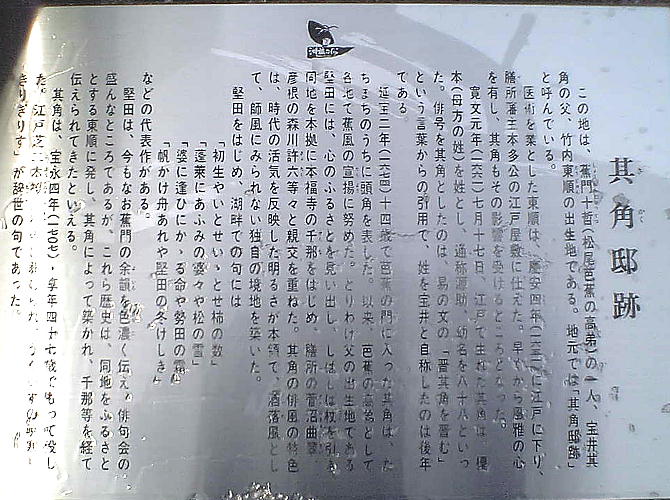 其角邸跡
この地は、蕉門十哲(松尾芭蕉の高弟)の一人、宝井其
角の父、竹内東順の出生地である。地元では「其角邸跡」
と呼んでいる。
医術を業とした東順は、慶安四年(一六五一)に江戸に下り、
膳所藩主本多公の江戸屋敷に仕えた。早くから風雅の心
を有し、其角もその影響を受けるところとなった。
寛文元年(一六六一)七月十七日、江戸で生れた其角は、榎
本(母方の姓)を姓とし、通称源助、幼名を八十八といっ
た。俳号を其角としたのは、易の文の「晋其角を晋む」
という言葉からの引用で、姓を宝井と自称したのは後年
である。
延宝二年(一六七四)十四歳で芭蕉の門に入った其角は、た
ちまちのうちに頭角を表した。以来、芭蕉の高弟として
各地で蕉風の宣揚に努めた。とりわけ父の出生地である
堅田には、心のふるさとを見い出し、しばしば杖を引き
同地を本拠に本福寺の千那をはじめ、膳所の菅沼曲翠、
彦根の森川許六等々と親交を重ねた。其角の俳風の特色
は、時代の活気を反映した明るさが本領で、洒落風とし
て、師風にみられない独自の境地を築いた。
堅田をはじめ、湖畔での句には
「初生やいとせいとせ柿の数」
「蓬莱にあふみの婆々や松の雪」
「婆に逢ひにかゝる命や勢田の霜」
「帆かけ舟あれや堅田の冬けしき」
などの代表作がある。
堅田は、今もなお蕉門の余韻を色濃く伝え、俳句会の
盛んなところであるが、これら歴史は、同地をふるさと
とする東順に発し、其角によって築かれ、千那等を経て
伝えられてきたといえる。
其角は、宝永四年(一七〇七)、享年四十七歳でもって没し
た。江戸芝二本榎
きりぎりす」が辞世の句であった。